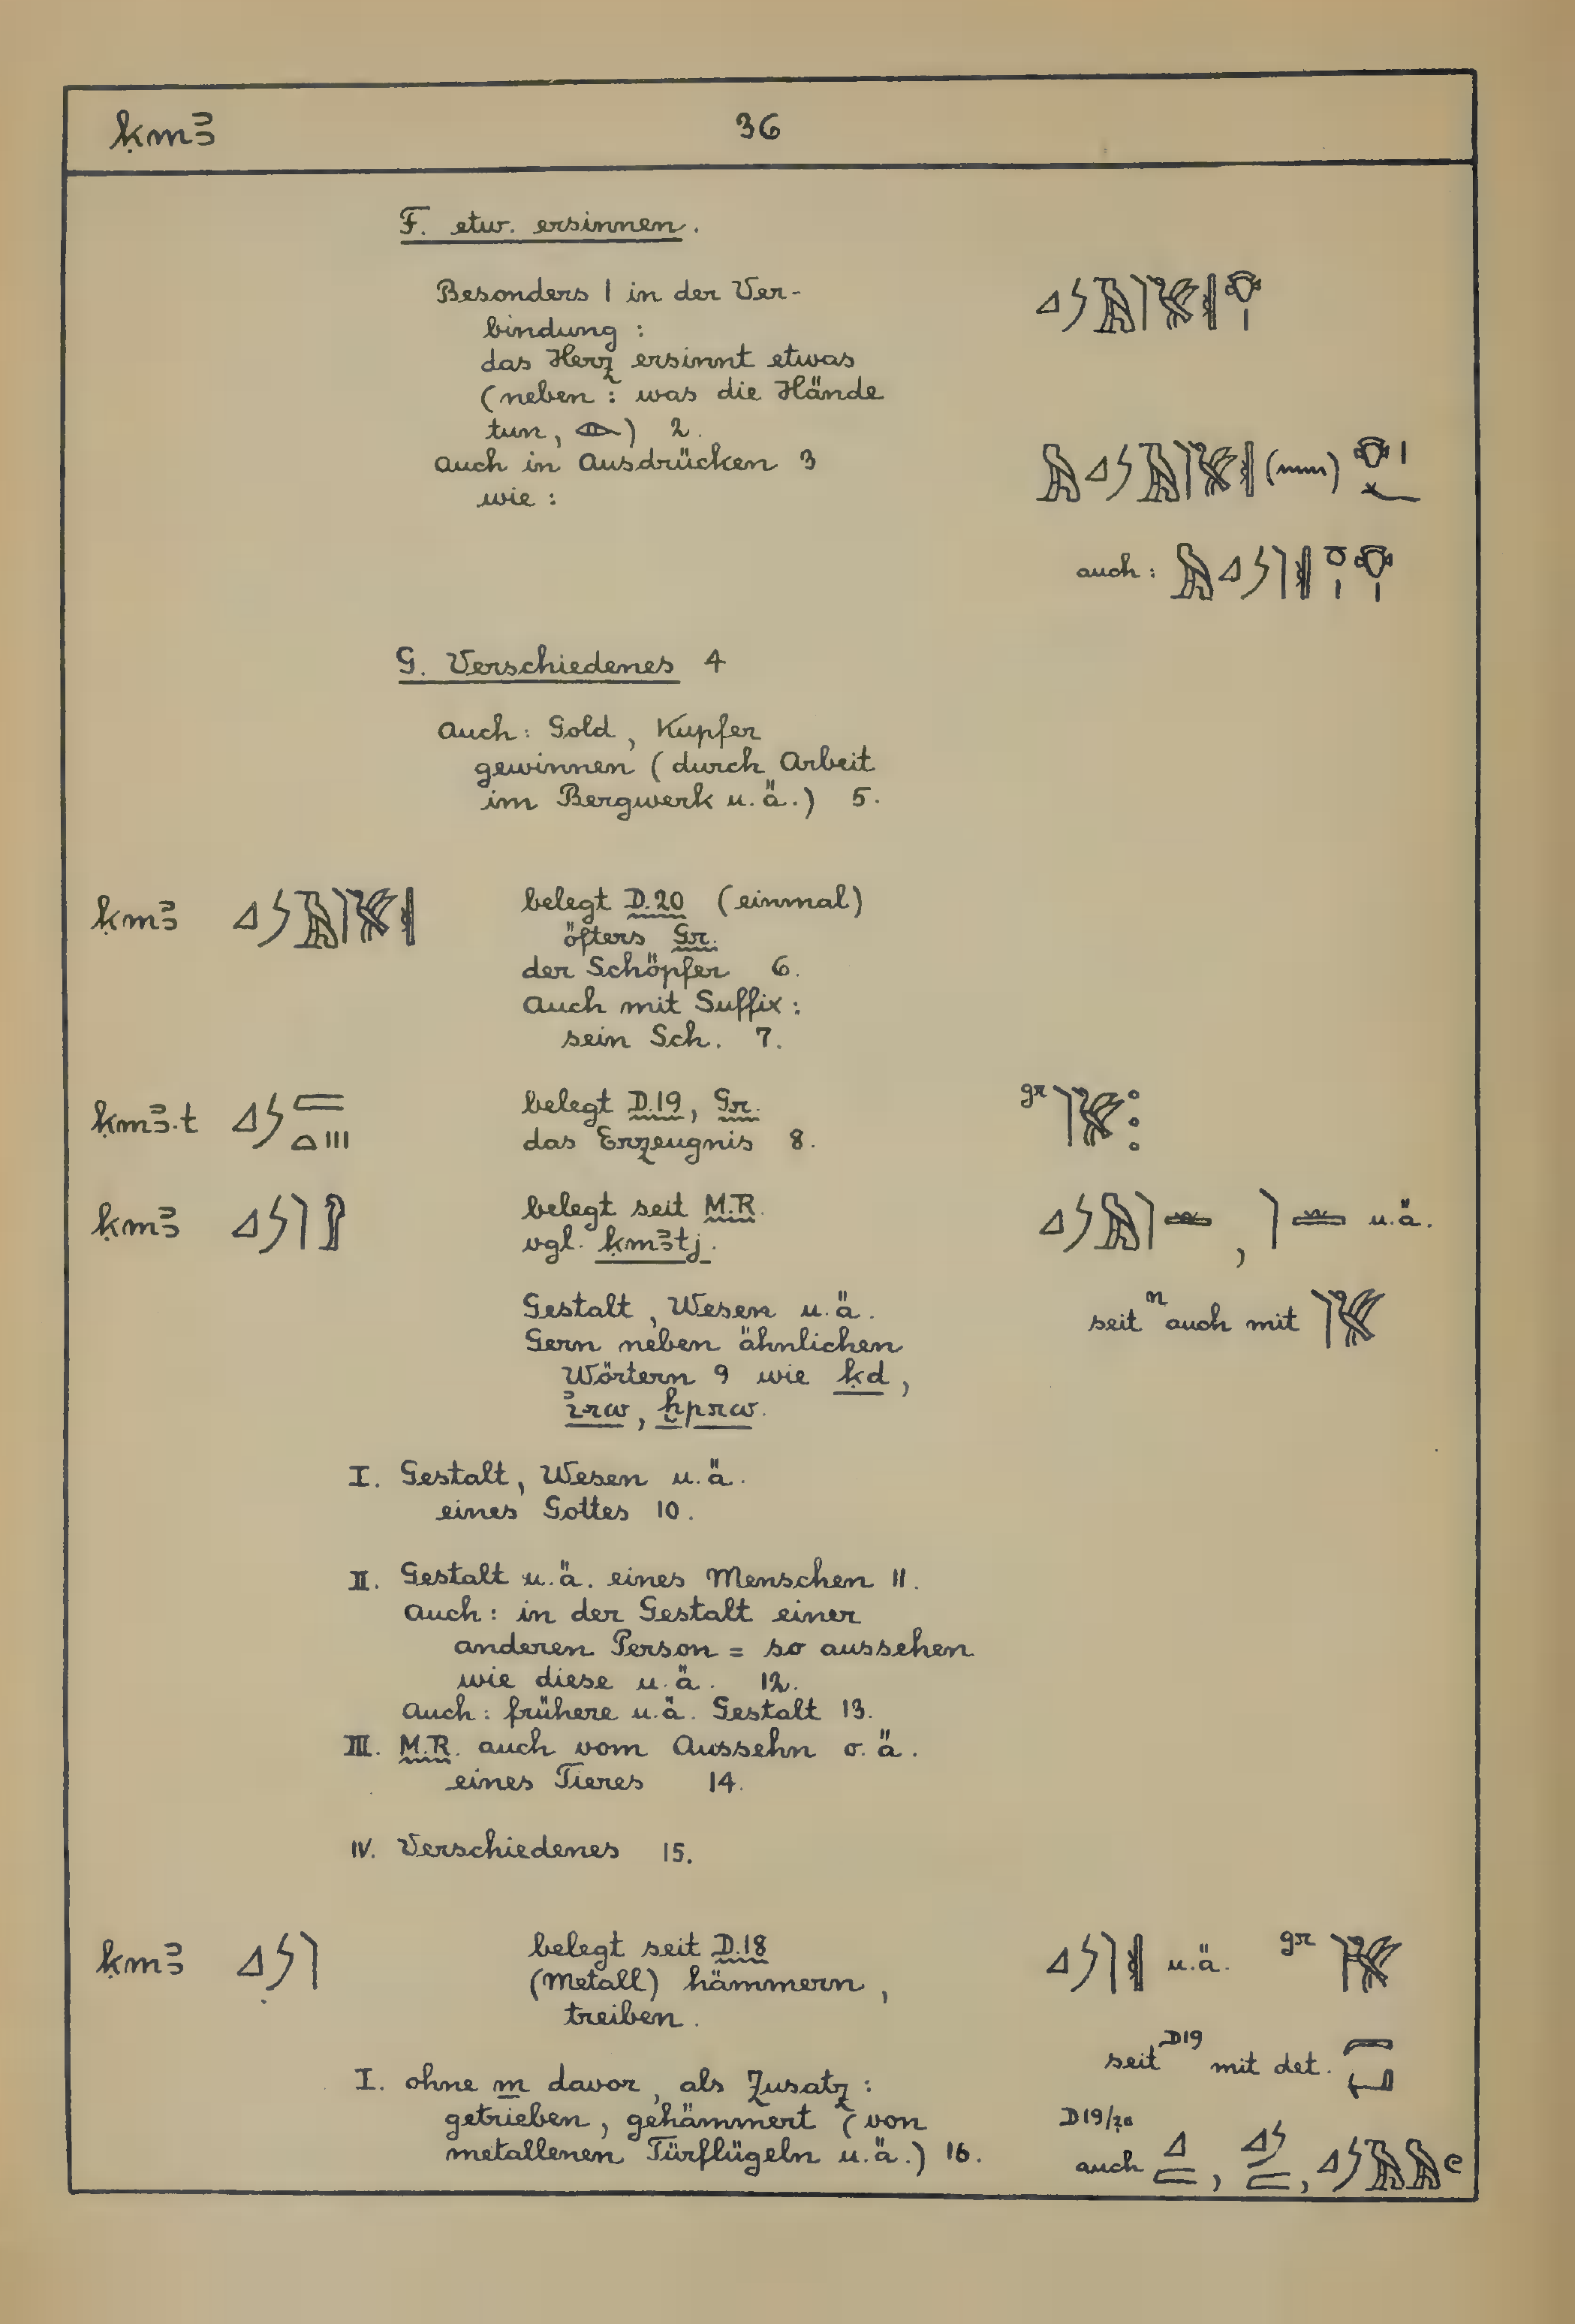 ḳmꜣ 36
F. etw. ersinnen.
Besonders 1 in der Ver-
bindung :
das Herz ersinnt etwas
(neben : was die Hände
tun, 𓁹) 2.
Auch in Ausdrücken 3
wie :
auch :
G. Verschiedenes 4
Auch : Gold, Kupfer
gewinnen (durch Arbeit
im Bergwerk u.ä.) 5.
ḳmꜣ belegt D.20 (einmal)
öfters Gr.
der Schöpfer 6.
Auch mit Suffix :
sein Sch. 7.
ḳmꜣ.t belegt D.19, Gr. gr
das Erzeugnis 8.
ḳmꜣ belegt seit M.R. u.ä.
vgl. ḳmꜣtj.
Gestalt, Wesen u.ä. seit n auch mit
Gern neben ähnlichen
Wörtern 9 wie ḳd,
ꞽrw, ḫprw.
I. Gestalt, Wesen u.ä.
eines Gottes 10.
II. Gestalt u.ä. eines Menschen 11.
Auch : in der Gestalt einer
anderen Person = so aussehen
wie diese u.ä. 12.
Auch : frühere u.ä. Gestalt 13.
III. M.R. auch vom Aussehn o.ä.
eines Tieres 14.
IV. Verschiedenes 15.
ḳmꜣ belegt seit D.18 u.ä. gr
(Metall) hämmern,
treiben.
seit D19 mit det.
I. ohne m davor, als Zusatz :
getrieben, gehämmert (von D19/20
metallenen Türflügeln u.ä.) 16. auch